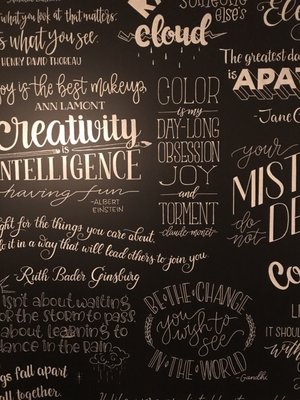 you look at that matters.
what you see.
HENRY DAVID THOREAU
Joy is the best makeup
ANN LAMONT
Creativity
is
INTELLIGENCE
having fun
-ALBERT
EINSTEIN
ght for the things you care about.
do it in a way that will lead others to join you
Ruth Bader Ginsburg
isn't about waiting
for the storm to pass
about learning to
dance in the rain.
things fall apart
fall together.
someone
else's
cloud
COLOR
is my
DAY-LONG
OBSESSION
JOY
and
TORMENT
-claude monet-
BE•THE•CHANGE
you wish to
see
IN•THE•WORLD
-Gandhi
The greatest da
is
APA
-Jane G
your
MIST
do not
DE
Co
LI
IT SHOULD